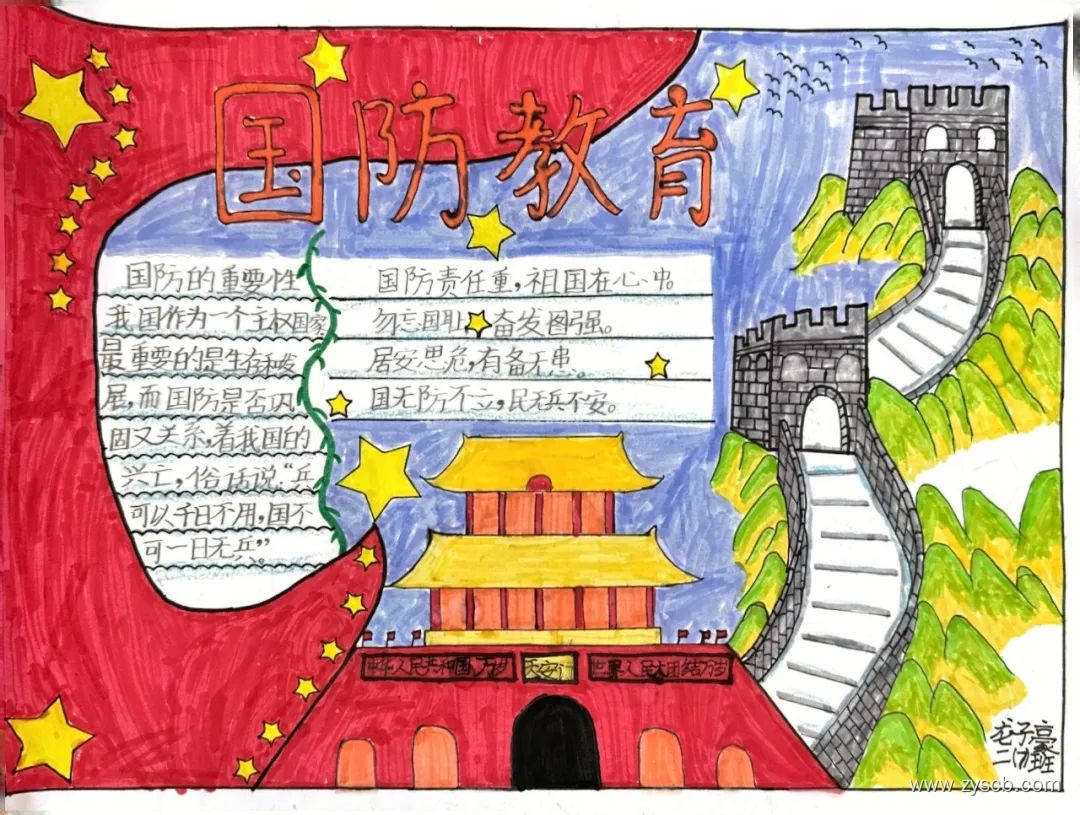 国防教育
国防的重要性
我国作为一个主权国家
最重要的是生存和发
展,而国防是否巩
固又关系,着我国的
兴亡,俗话说:“兵
可以千日不用,国不
可一日无兵”。
国防责任重,祖国在心中。
勿忘国耻 奋发图强。
居安思危,有备无患。
国无防不立,民无兵不安。
中华人民共和国万岁
天安门
世界人民大团结万岁
龙子
二
www.zyscb.com